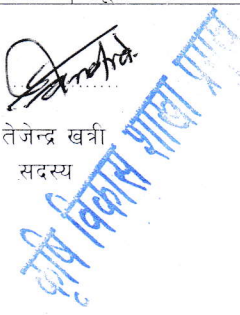 तेजेन्द्र खत्री
सदस्य
कृषि विकास शाखा प्रमुख